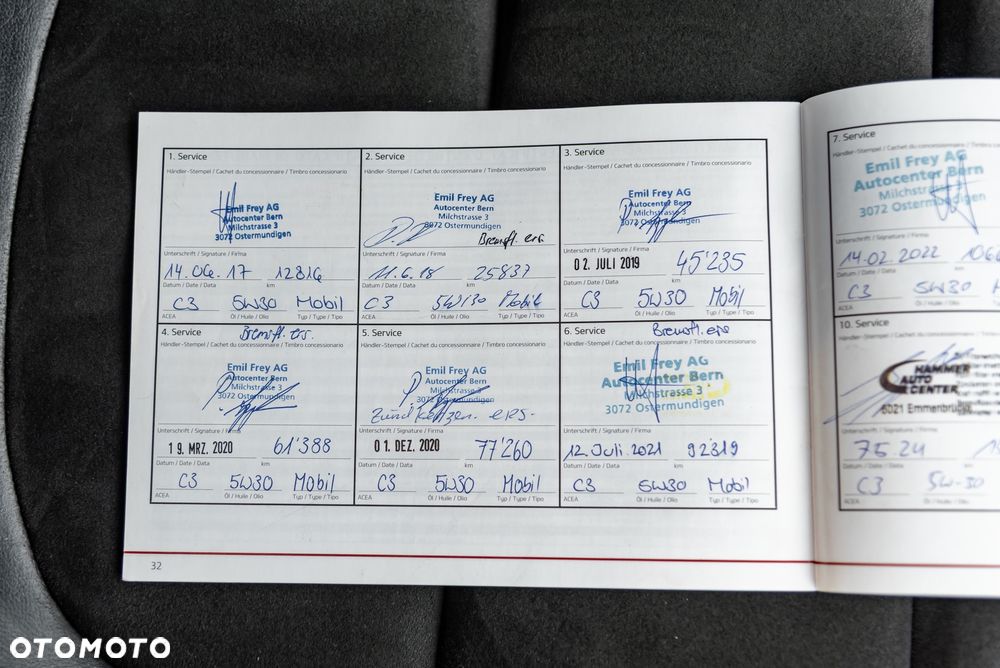 1. Service
Händler-Stempel / Cachet du concessionnaire / Timbro concessionario
Emil Frey AG
Autocenter Bern
Milchstrasse 3
3072 Ostermundigen
Unterschrift / Signature / Firma
14.06.17 12816
Datum / Date / Data km
C3 5W30 Mobil
ACEA Öl / Huile / Olio Typ / Type / Tipo
2. Service
Händler-Stempel / Cachet du concessionnaire / Timbro concessionario
Emil Frey AG
Autocenter Bern
Milchstrasse 3
3072 Ostermundigen
Bremsfl. ers
Unterschrift / Signature / Firma
11.6.18 25837
Datum / Date / Data km
C3 5W/30 Mobil
ACEA Öl / Huile / Olio Typ / Type / Tipo
3. Service
Händler-Stempel / Cachet du concessionnaire / Timbro concessionario
Emil Frey AG
Autocenter Bern
Milchstrasse 3
3072 Ostermundigen
Unterschrift / Signature / Firma
02. JULI 2019 45'235
Datum / Date / Data km
C3 5W30 Mobil
ACEA Öl / Huile / Olio Typ / Type / Tipo
4. Service
Bremsfl. ers.
Händler-Stempel / Cachet du concessionnaire / Timbro concessionario
Emil Frey AG
Autocenter Bern
Milchstrasse 3
3072 Ostermundigen
Unterschrift / Signature / Firma
19. MRZ. 2020 61'388
Datum / Date / Data km
C3 5W30 Mobil
ACEA Öl / Huile / Olio Typ / Type / Tipo
5. Service
Händler-Stempel / Cachet du concessionnaire / Timbro concessionario
Emil Frey AG
Autocenter Bern
Milchstrasse 3
3072 Ostermundigen
Zündkerzen. ers.
Unterschrift / Signature / Firma
01. DEZ. 2020 77'260
Datum / Date / Data km
C3 5W30 Mobil
ACEA Öl / Huile / Olio Typ / Type / Tipo
6. Service
Bremsfl. ers
Händler-Stempel / Cachet du concessionnaire / Timbro concessionario
Emil Frey AG
Autocenter Bern
Milchstrasse 3
3072 Ostermundigen
Unterschrift / Signature / Firma
12. Juli. 2021 92319
Datum / Date / Data km
C3 5W30 Mobil
ACEA Öl / Huile / Olio Typ / Type / Tipo
32
7. Service
Händler-Stempel / Cachet du concessionnaire / Timbro
Emil Frey AG
Autocenter Bern
Milchstrasse 3
3072 Ostermundigen
Unterschrift / Signature / Firma
14.02.2022
Datum / Date / Data
C3 5W30
ACEA Öl / Huile / Olio
10. Service
Händler-Stempel / Cachet du concessionnaire / Timbro
HAMMER
AUTO
CENTER
6021 Emmenbrücke
Unterschrift / Signature / Firma
7.5.24
Datum / Date / Data
C3 5W-30
ACEA Öl / Huile / Olio
OTOMOTO